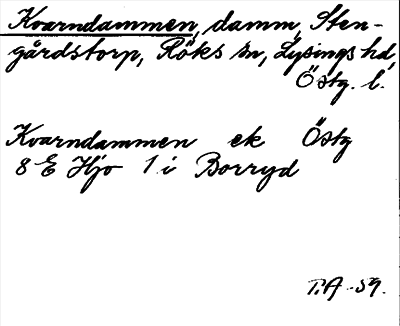 Kvarndammen, damm, Sten-
gårdstorp, Röks sn, Lysings hd,
Östg. l.
Kvarndammen ek Östg
8 E Hjo 1 i Borryd
P.A -59.